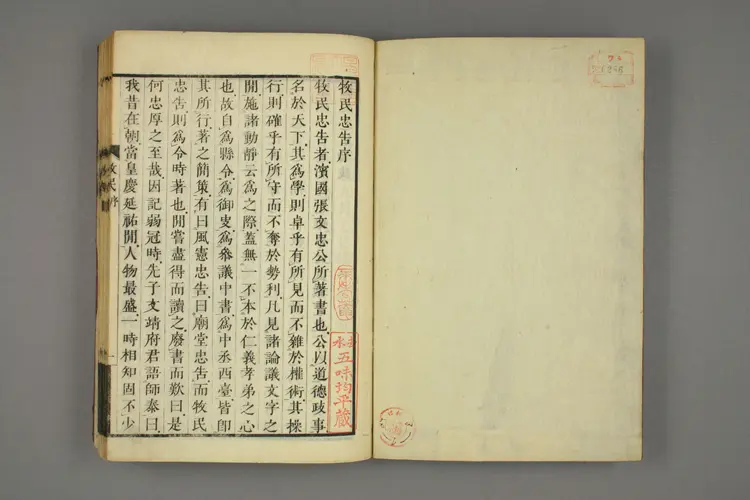 牧民忠告序
牧民忠告者濱國張文忠公所著書也公以道德政事
名於天下其爲學則卓乎有所見而不雜於權術其操
行則確乎有所守而不奪於勢利凡見諸論議文字之
閒施諸動靜云爲之際蓋無一不本於仁義孝弟之心
也故自爲縣令爲御史爲參議中書爲中丞西臺皆卽
其所行著之簡策有曰風憲忠告曰廟堂忠告而牧民
忠告則爲令時著也閒嘗盡得而讀之廢書而歎曰是
何忠厚之至哉因記弱冠時先子文靖府君語師泰曰
我昔在朝當皇慶延祐閒人物最盛一時相知固不少
牧民序
五味均平藏